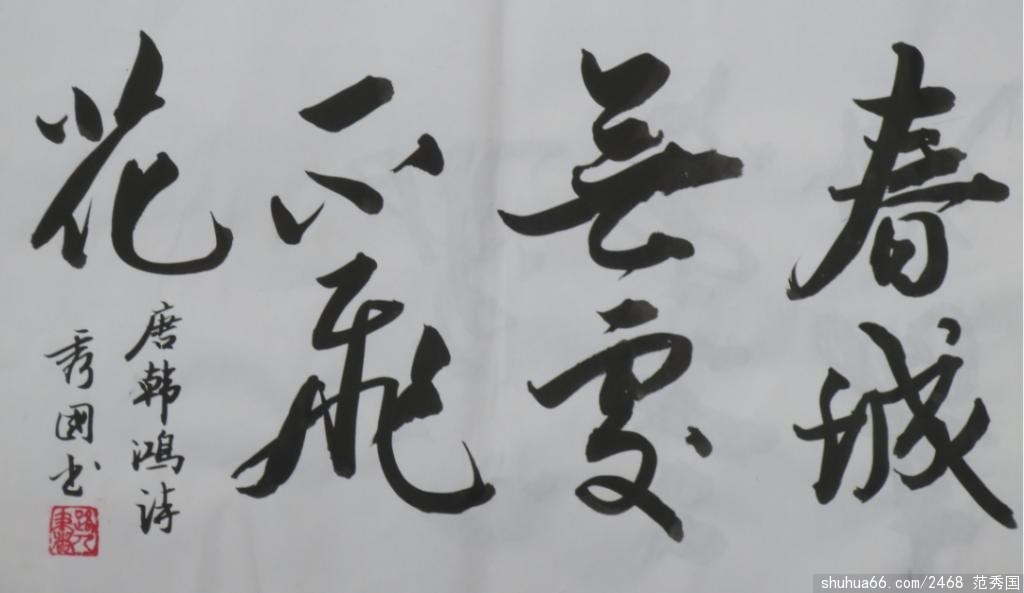 春城
無處
不飛
花
唐韩鴻诗
秀國书
shuhua66.com/2468 范秀国